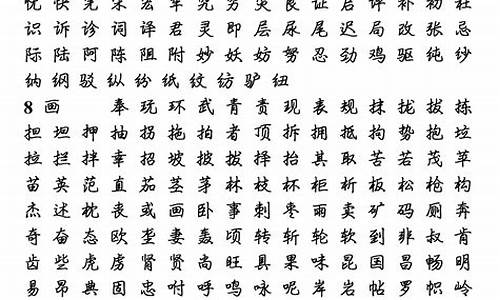 忧 快 完 宋 宏 牢 究 穷 灾 良 证 启 评 补 初 社
识 诉 诊 词 译 君 灵 即 层 尿 尾 迟 局 改 张 忌
际 陆 阿 陈 阻 附 妙 妖 妨 努 忍 劲 鸡 驱 纯 纱
纳 纲 驳 纵 纷 纸 纹 纺 驴 纽
8 画 奉 玩 环 武 青 责 现 表 规 抹 拢 拔 拣
担 坦 押 抽 拐 拖 拍 者 顶 拆 拥 抵 拘 势 抱 垃
拉 拦 拌 幸 招 坡 披 拨 择 抬 其 取 苦 若 茂 苹
苗 英 范 直 茄 茎 茅 林 枝 杯 柜 析 板 松 枪 构
杰 述 枕 丧 或 画 卧 事 刺 枣 雨 卖 矿 码 厕 奔
奇 奋 态 欧 垄 妻 轰 顷 转 斩 轮 软 到 非 叔 肯
齿 些 虎 虏 肾 贤 尚 旺 具 果 味 昆 国 昌 畅 明
易 昂 典 固 忠 咐 呼 鸣 咏 呢 岸 岩 帖 罗 帜 岭